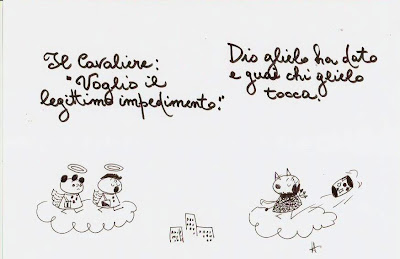 Il Cavaliere:
"Voglio il
legittimo impedimento."
Dio glielo ha dato
e guai chi glielo
tocca.